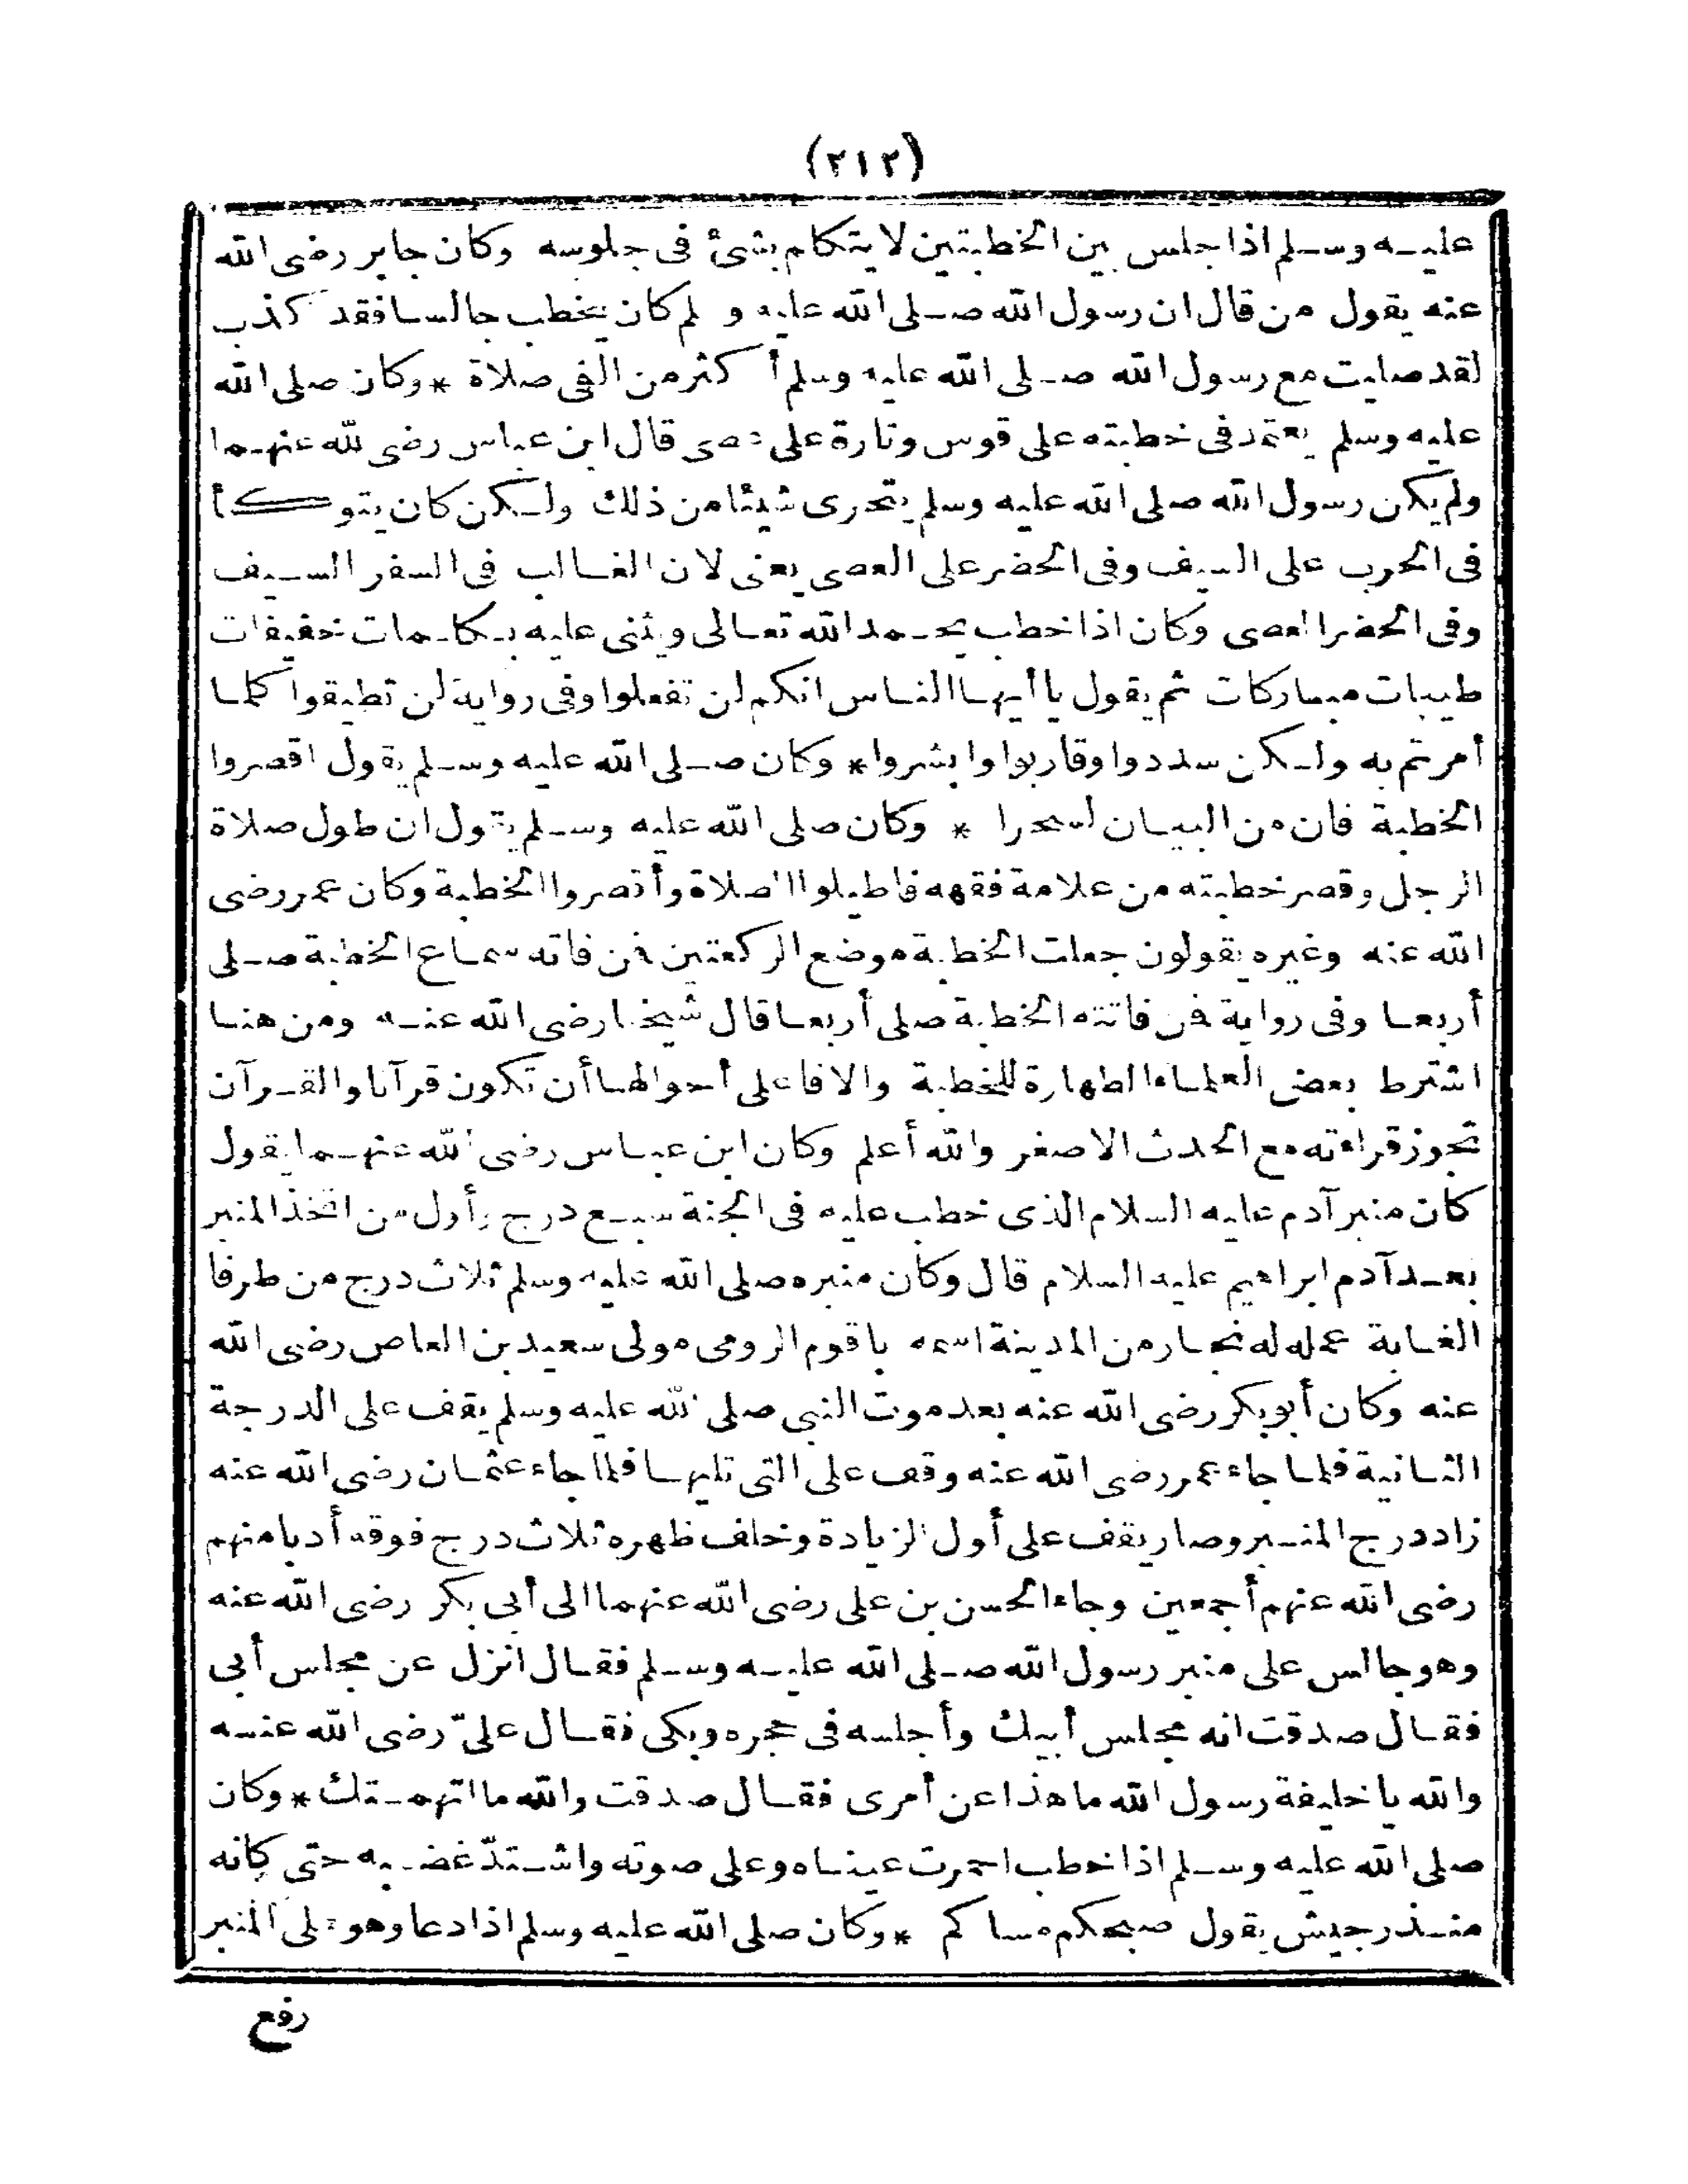 (٢١٢)
عليه وسلم اذا جلس بين الخطبتين لا يتكلم بشئ فى جلوسه وكان جابر رضى الله
عنه يقول من قال ان رسول الله صلى الله عليه و لم كان يخطب جالسا فقد كذب
لقد صليت مع رسول الله صلى الله عليه وسلم أكثر من الفى صلاة * وكان صلى الله
عليه وسلم يعتمد فى خطبته على قوس وتارة على عصى قال ابن عباس رضى الله عنهما
ولم يكن رسول الله صلى الله عليه وسلم يتحرى شيئا من ذلك ولكن كان يتوكأ
فى الحرب على السيف وفى الحضر على العصى يعنى لان الغالب فى السفر السيف
وفى الحضر العصى وكان اذا خطب يحمد الله تعالى ويثنى عليه بكلمات خفيفات
طيبات مباركات ثم يقول يا أيها الناس انكم لن تفعلوا وفى رواية لن تطيقوا كلما
أمرتم به ولكن سددوا وقاربوا وابشروا * وكان صلى الله عليه وسلم يقول اقصروا
الخطبة فان من البيان لسحرا * وكان صلى الله عليه وسلم يقول ان طول صلاة
الرجل وقصر خطبته من علامة فقهه فاطيلوا الصلاة وأقصروا الخطبة وكان عمر رضى
الله عنه وغيره يقولون جعلت الخطبة موضع الركعتين فمن فاته سماع الخطبة صلى
أربعا وفى رواية فمن فاتته الخطبة صلى أربعا قال شيخنا رضى الله عنه ومن هنا
اشترط بعض العلماء الطهارة للخطبة والا فاعلى أحوالها أن تكون قرآنا والقرآن
تجوز قراءته مع الحدث الاصغر والله أعلم وكان ابن عباس رضى الله عنهما يقول
كان منبر آدم عليه السلام الذى خطب عليه فى الجنة سبع درج وأول من اتخذ المنبر
بعد آدم ابراهيم عليه السلام قال وكان منبره صلى الله عليه وسلم ثلاث درج من طرفا
الغابة عمله له نجار من المدينة اسمه باقوم الرومى مولى سعيد بن العاص رضى الله
عنه وكان أبو بكر رضى الله عنه بعد موت النبى صلى الله عليه وسلم يقف على الدرجة
الثانية فلما جاء عمر رضى الله عنه وقف على التى تليها فلما جاء عثمان رضى الله عنه
زاد درج المنبر وصار يقف على أول الزيادة وخلف ظهره ثلاث درج فوقه أدبا منهم
رضى الله عنهم أجمعين وجاء الحسن بن على رضى الله عنهما الى أبى بكر رضى الله عنه
وهو جالس على منبر رسول الله صلى الله عليه وسلم فقال انزل عن مجلس أبى
فقال صدقت انه مجلس أبيك وأجلسه فى حجره وبكى فقال علىّ رضى الله عنه
والله يا خليفة رسول الله ما هذا عن أمرى فقال صدقت والله ما اتهمتك * وكان
صلى الله عليه وسلم اذا خطب احمرت عيناه وعلى صوته واشتدّ غضبه حتى كانه
منذر جيش يقول صبحكم مساكم * وكان صلى الله عليه وسلم اذا دعا وهو على المنبر
رفع